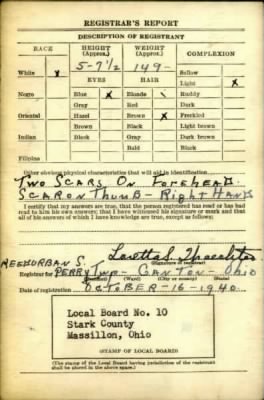 REGISTRAR'S REPORT
DESCRIPTION OF REGISTRANT
RACE HEIGHT (Approx.) WEIGHT (Approx.) COMPLEXION
5-7½ 149-
White X Sallow
EYES HAIR Light X
Negro Blue X Blonde Ruddy
Gray Red Dark
Oriental Hazel Brown X Freckled
Brown Black Light brown
Indian Black Gray Dark brown
Bald Black
Filipino
Other obvious physical characteristics that will aid in identification
TWO SCARS ON FOREHEAD.
SCAR ON THUMB - RIGHT HAND
I certify that my answers are true; that the person registered has read or has had
read to him his own answers; that I have witnessed his signature or mark and that
all of his answers of which I have knowledge are true, except as follows:
REEDURBAN S. Loretta S.
(Signature of registrar)
Registrar for PERRY TWP - CANTON - OHIO
(Precinct) (Ward) (City or county) (State)
Date of registration OCTOBER-16-1940
Local Board No. 10
Stark County
Massillon, Ohio
(STAMP OF LOCAL BOARD)
(The stamp of the Local Board having jurisdiction of the registrant
shall be placed in the above space.)